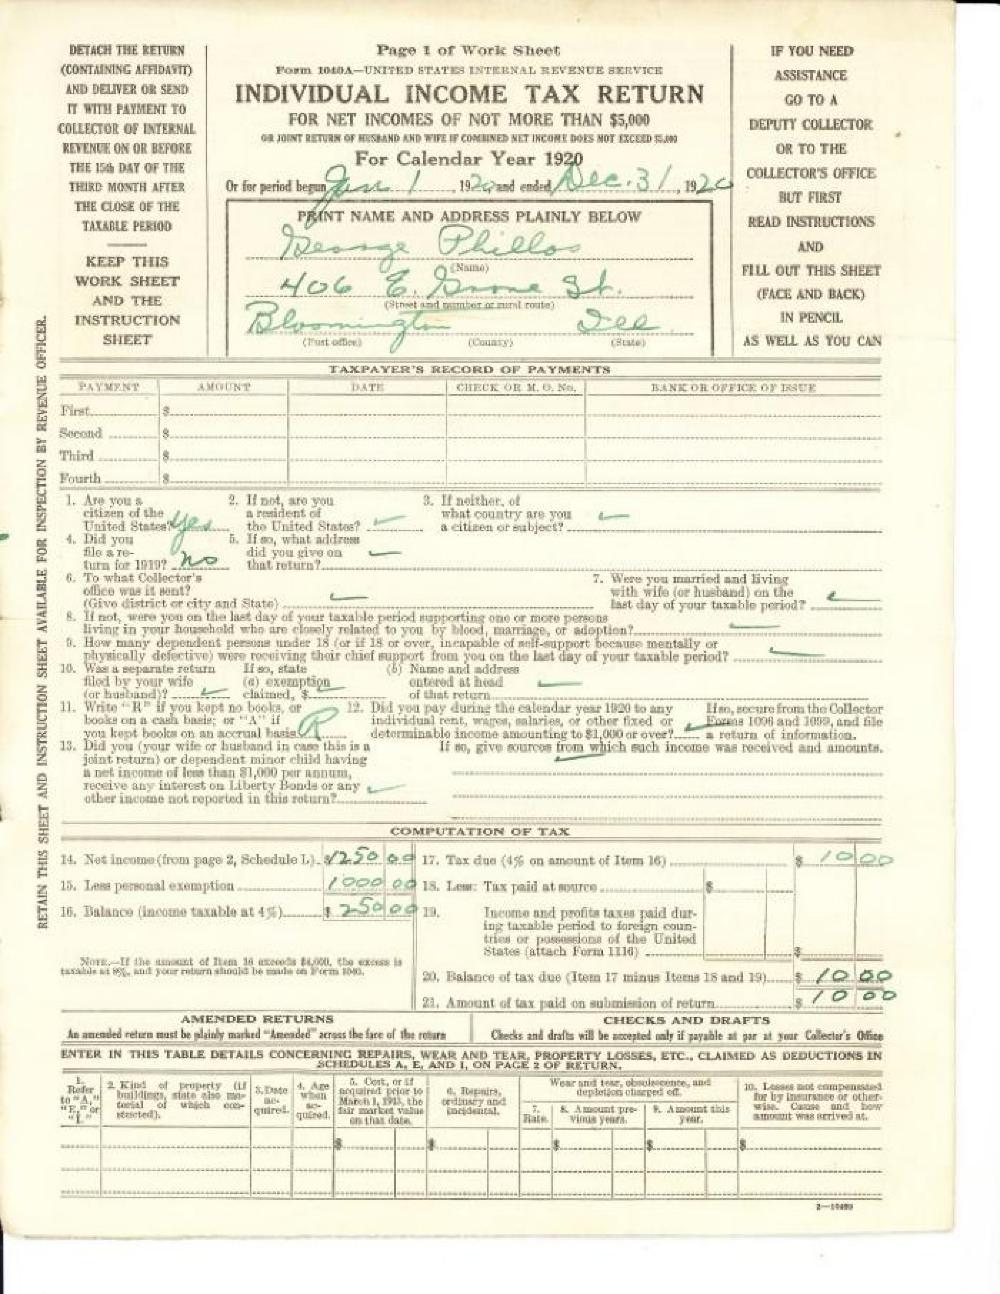 DETACH THE RETURN
(CONTAINING AFFIDAVIT)
AND DELIVER OR SEND
IT WITH PAYMENT TO
COLLECTOR OF INTERNAL
REVENUE ON OR BEFORE
THE 15th DAY OF THE
THIRD MONTH AFTER
THE CLOSE OF THE
TAXABLE PERIOD
KEEP THIS
WORK SHEET
AND THE
INSTRUCTION
SHEET
Page 1 of Work Sheet
Form 1040A—UNITED STATES INTERNAL REVENUE SERVICE
INDIVIDUAL INCOME TAX RETURN
FOR NET INCOMES OF NOT MORE THAN $5,000
OR JOINT RETURN OF HUSBAND AND WIFE IF COMBINED NET INCOME DOES NOT EXCEED $5,000
For Calendar Year 1920
Or for period begun Jan 1, 1920, and ended Dec. 31, 1920
PRINT NAME AND ADDRESS PLAINLY BELOW
George Phillos
(Name)
406 E. Grove St.
(Street and number or rural route)
Bloomington Ill
(Post office) (County) (State)
IF YOU NEED
ASSISTANCE
GO TO A
DEPUTY COLLECTOR
OR TO THE
COLLECTOR'S OFFICE
BUT FIRST
READ INSTRUCTIONS
AND
FILL OUT THIS SHEET
(FACE AND BACK)
IN PENCIL
AS WELL AS YOU CAN
RETAIN THIS SHEET AND INSTRUCTION SHEET AVAILABLE FOR INSPECTION BY REVENUE OFFICER.
TAXPAYER'S RECORD OF PAYMENTS
PAYMENT AMOUNT DATE CHECK OR M. O. No. BANK OR OFFICE OF ISSUE
First $
Second $
Third $
Fourth $
1. Are you a
citizen of the
United States? Yes
2. If not, are you
a resident of
the United States? ✓
3. If neither, of
what country are you
a citizen or subject? ✓
4. Did you
file a re-
turn for 1919? No
5. If so, what address
did you give on
that return? ✓
6. To what Collector's
office was it sent?
(Give district or city and State) ✓
7. Were you married and living
with wife (or husband) on the
last day of your taxable period? ✓
8. If not, were you on the last day of your taxable period supporting one or more persons
living in your household who are closely related to you by blood, marriage, or adoption? ✓
9. How many dependent persons under 18 (or if 18 or over, incapable of self-support because mentally or
physically defective) were receiving their chief support from you on the last day of your taxable period? ✓
10. Was a separate return
filed by your wife
(or husband)? ✓
If so, state
(a) exemption
claimed, $ ✓
(b) Name and address
entered at head
of that return ✓
11. Write "R" if you kept no books, or
books on a cash basis; or "A" if
you kept books on an accrual basis. R
12. Did you pay during the calendar year 1920 to any
individual rent, wages, salaries, or other fixed or
determinable income amounting to $1,000 or over? ✓
If so, secure from the Collector
Forms 1096 and 1099, and file
a return of information.
13. Did you (your wife or husband in case this is a
joint return) or dependent minor child having
a net income of less than $1,000 per annum,
receive any interest on Liberty Bonds or any
other income not reported in this return? ✓
If so, give sources from which such income was received and amounts.
✓
COMPUTATION OF TAX
14. Net income (from page 2, Schedule L) $ 1250 00
15. Less personal exemption 1000 00
16. Balance (income taxable at 4%) $ 250 00
NOTE.—If the amount of Item 16 exceeds $4,000, the excess is
taxable at 8%, and your return should be made on Form 1040.
17. Tax due (4% on amount of Item 16) $ 10 00
18. Less: Tax paid at source $
19. Income and profits taxes paid dur-
ing taxable period to foreign coun-
tries or possessions of the United
States (attach Form 1116) $
20. Balance of tax due (Item 17 minus Items 18 and 19) $ 10 00
21. Amount of tax paid on submission of return $ 10 00
AMENDED RETURNS
An amended return must be plainly marked "Amended" across the face of the return
CHECKS AND DRAFTS
Checks and drafts will be accepted only if payable at par at your Collector's Office
ENTER IN THIS TABLE DETAILS CONCERNING REPAIRS, WEAR AND TEAR, PROPERTY LOSSES, ETC., CLAIMED AS DEDUCTIONS IN
SCHEDULES A, E, AND I, ON PAGE 2 OF RETURN.
1.
Refer
to "A,"
"E," or
"I."
2. Kind of property (if
buildings, state also ma-
terial of which con-
structed).
3. Date
ac-
quired.
4. Age
when
ac-
quired.
5. Cost, or if
acquired prior to
March 1, 1913, the
fair market value
on that date.
6. Repairs,
ordinary and
incidental.
Wear and tear, obsolescence, and
depletion charged off.
7.
Rate.
8. Amount pre-
vious years.
9. Amount this
year.
10. Losses not compensated
for by insurance or other-
wise. Cause and how
amount was arrived at.
$ $ $ $ $
2—10409